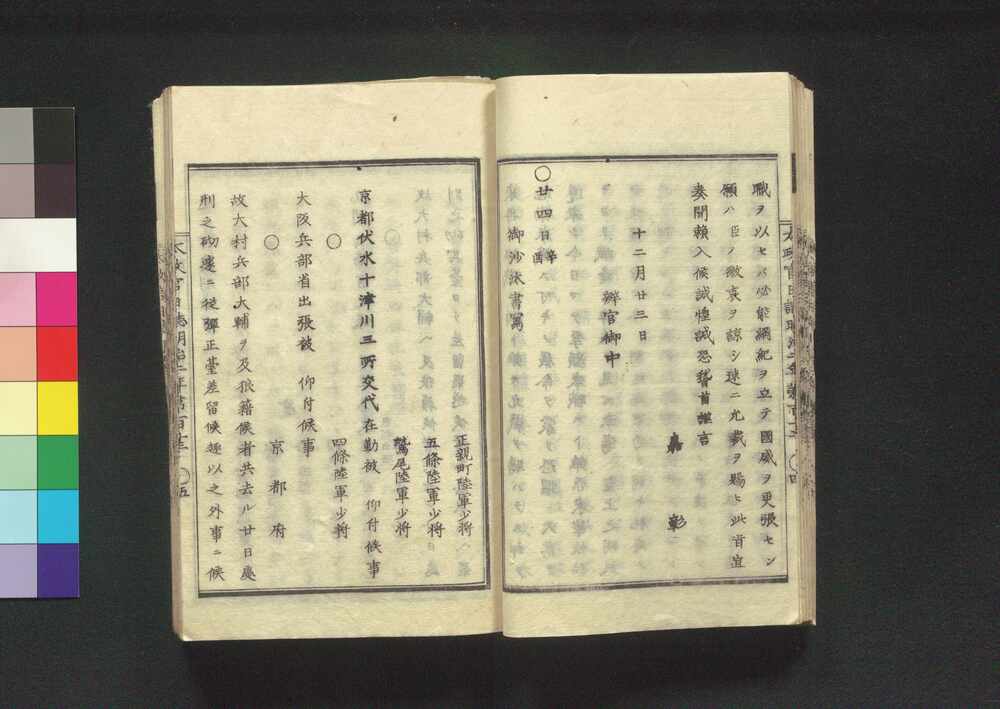 職ヲ以セバ必能綱紀ヲ立テ國威ヲ更張セン
願ハ臣ノ微衷ヲ諒シ速ニ允裁ヲ賜ヒ此旨宜
奏聞頼入候誠惶誠恐稽首謹言
嘉彰
十二月廿三日
辨官御中
○廿四日辛酉
御沙汰書寫
正親町陸軍少将
五條陸軍少将
鷲尾陸軍少将
京都伏水十津川三所交代在勤被 仰付候事
○
四條陸軍少将
大阪兵部省出張被 仰付候事
○
京都府
故大村兵部大輔ヲ及狼籍候者共去ル廿日處
刑之砌遽ニ從彈正臺差留候趣以之外事ニ候
太政官日誌明治二年第百廿
五